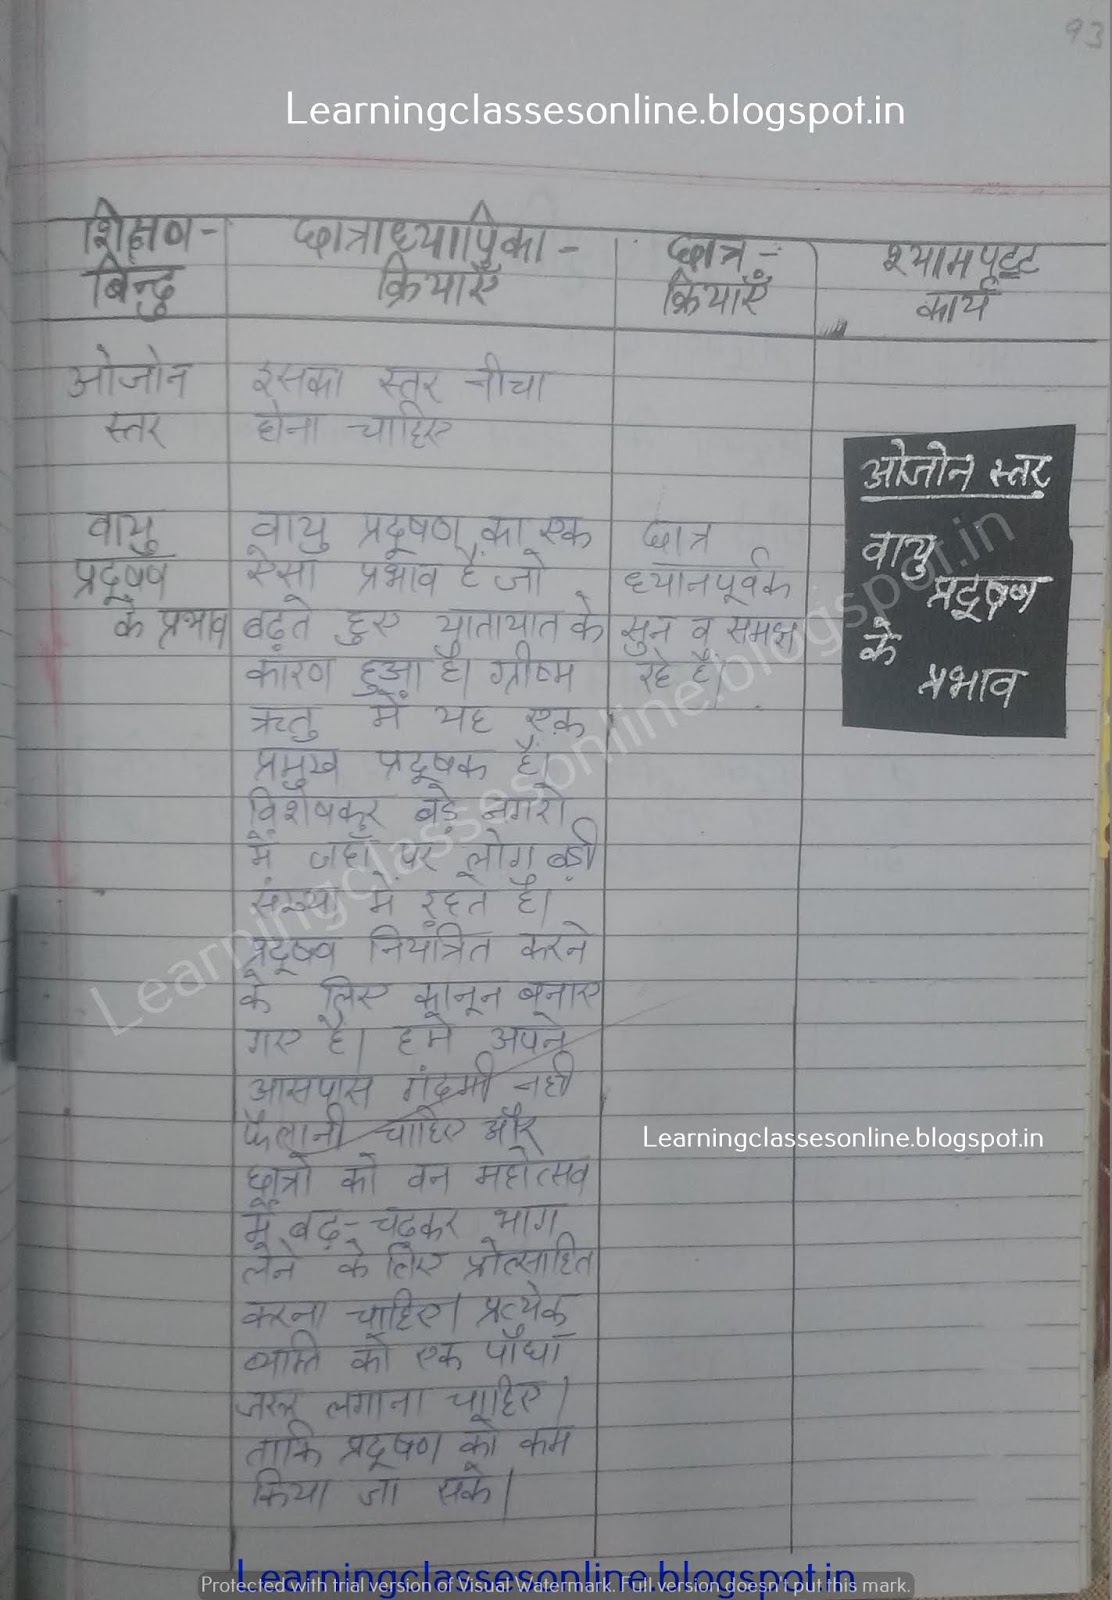 93
Learningclassesonline.blogspot.in
शिक्षण-
बिन्दु
छात्राध्यापिका-
क्रियाएँ
छात्र-
क्रियाएँ
श्यामपट्ट
कार्य
ओजोन
स्तर
इसका स्तर नीचा
होना चाहिए
वायु
प्रदूषण
के प्रभाव
वायु प्रदूषण का एक
ऐसा प्रभाव है जो
बढ़ते हुए यातायात के
कारण हुआ है। ग्रीष्म
ऋतु में यह एक
प्रमुख प्रदूषक है।
विशेषकर बड़े नगरो
में जहाँ पर लोग बड़ी
संख्या में रहते है।
प्रदूषण नियंत्रित करने
के लिए कानून बनाए
गए है। हमे अपने
आसपास गंदगी नही
फैलानी चाहिए और
छात्रो को वन महोत्सव
में बढ़-चढ़कर भाग
लेने के लिए प्रोत्साहित
करना चाहिए। प्रत्येक
व्यक्ति को एक पौधा
जरूर लगाना चाहिए।
ताकि प्रदूषण को कम
किया जा सके।
छात्र
ध्यानपूर्वक
सुन व समझ
रहे है।
ओजोन स्तर
वायु
प्रदूषण
के
प्रभाव
Learningclassesonline.blogspot.in
Learningclassesonline.blogspot.in
Learningclassesonline.blogspot.in
Protected with trial version of Visual Watermark. Full version doesn't put this mark.